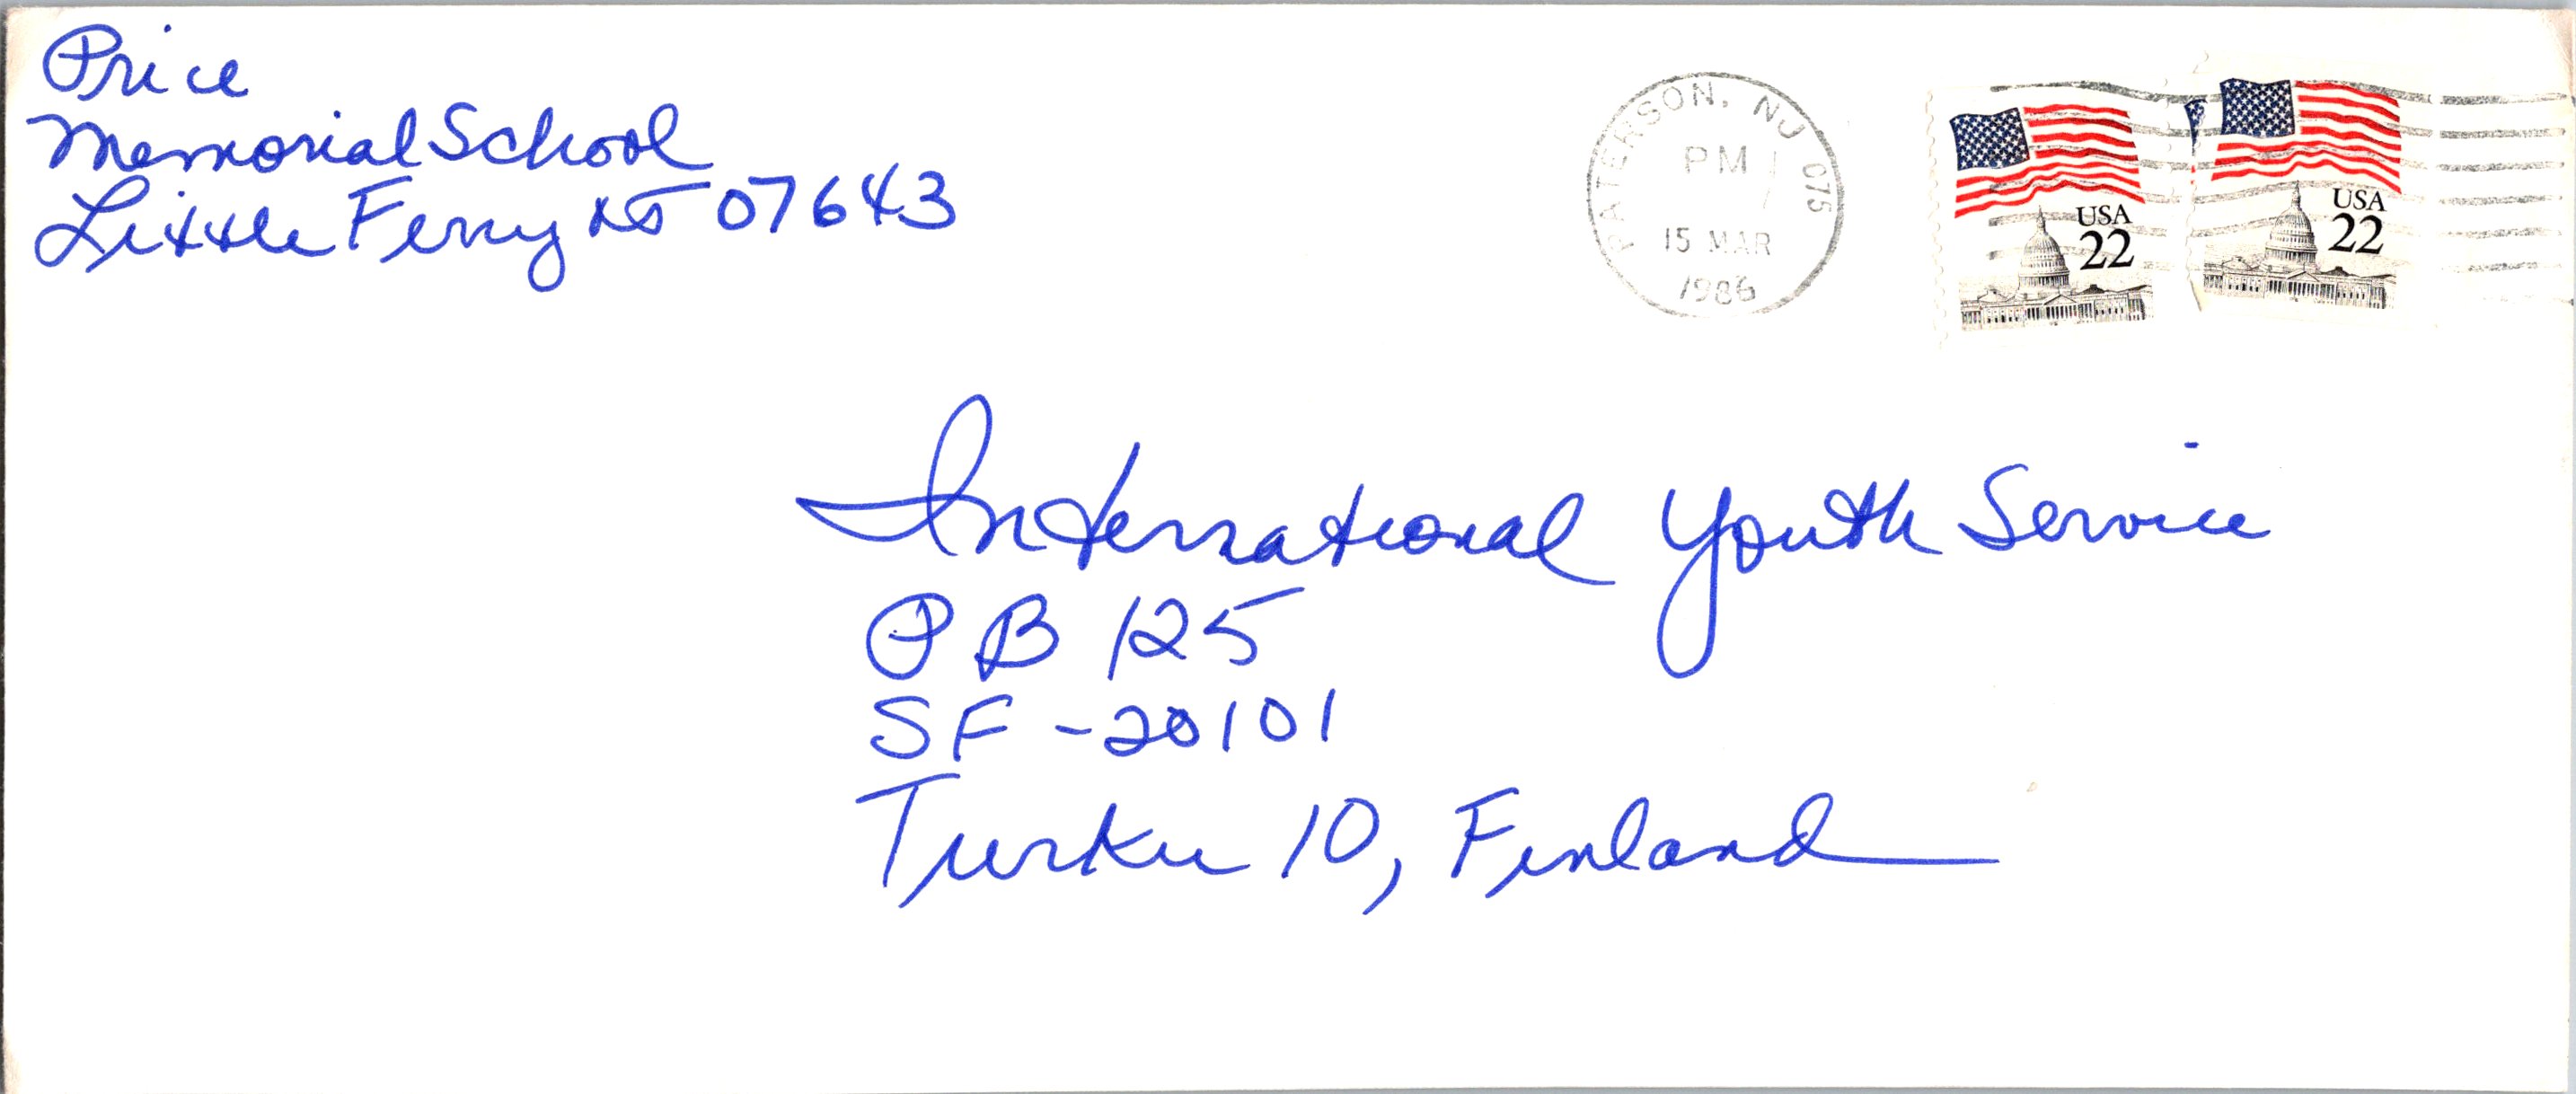 Price
Memorial School
Little Ferry NJ 07643
PATERSON, NJ 075
PM
15 MAR
1986
USA
22
USA
22
International Youth Service
P B 125
SF - 20101
Turku 10, Finland